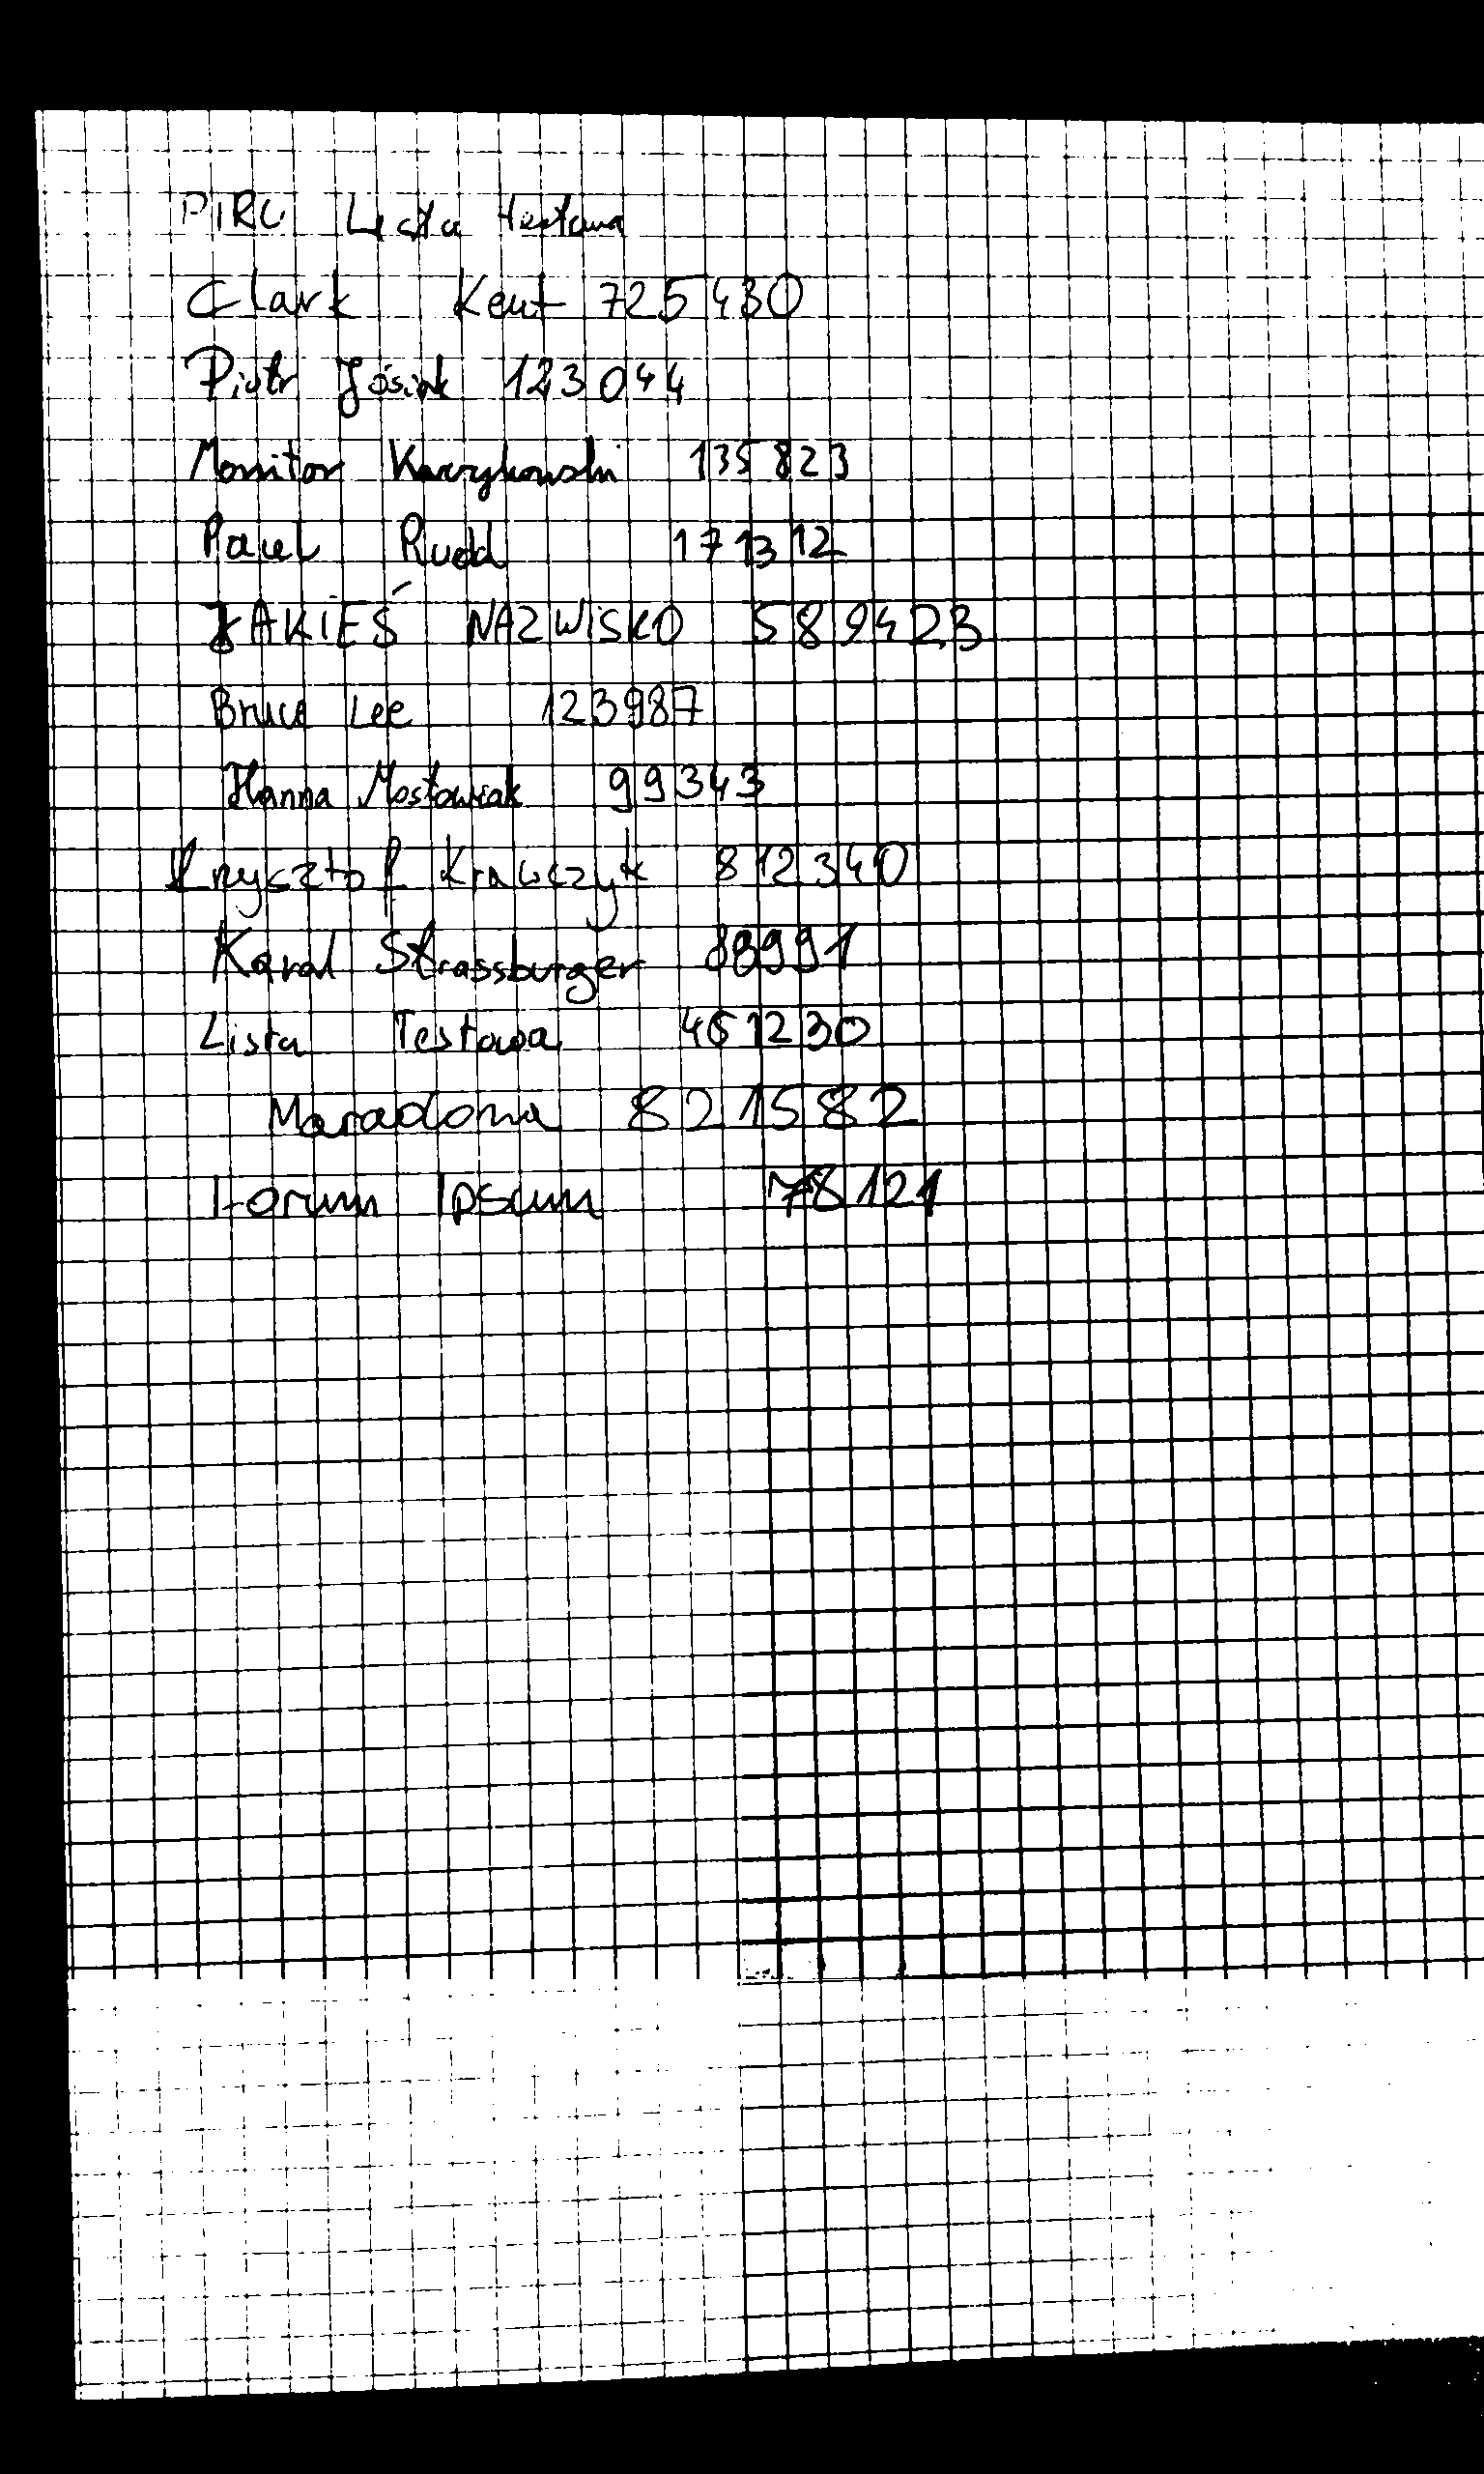 PIRO Lista testowa
Clark Kent 725430
Piotr Jósiak 123044
Monitor Kaczykowski 135823
Paul Rudd 171312
JAKIEŚ NAZWISKO 589423
Bruce Lee 123987
Hanna Mostowiak 99343
Krzysztof Krawczyk 812340
Karol Strassburger 88991
Lista Testowa 461230
Maradona 821582
Lorum Ipsum 78121